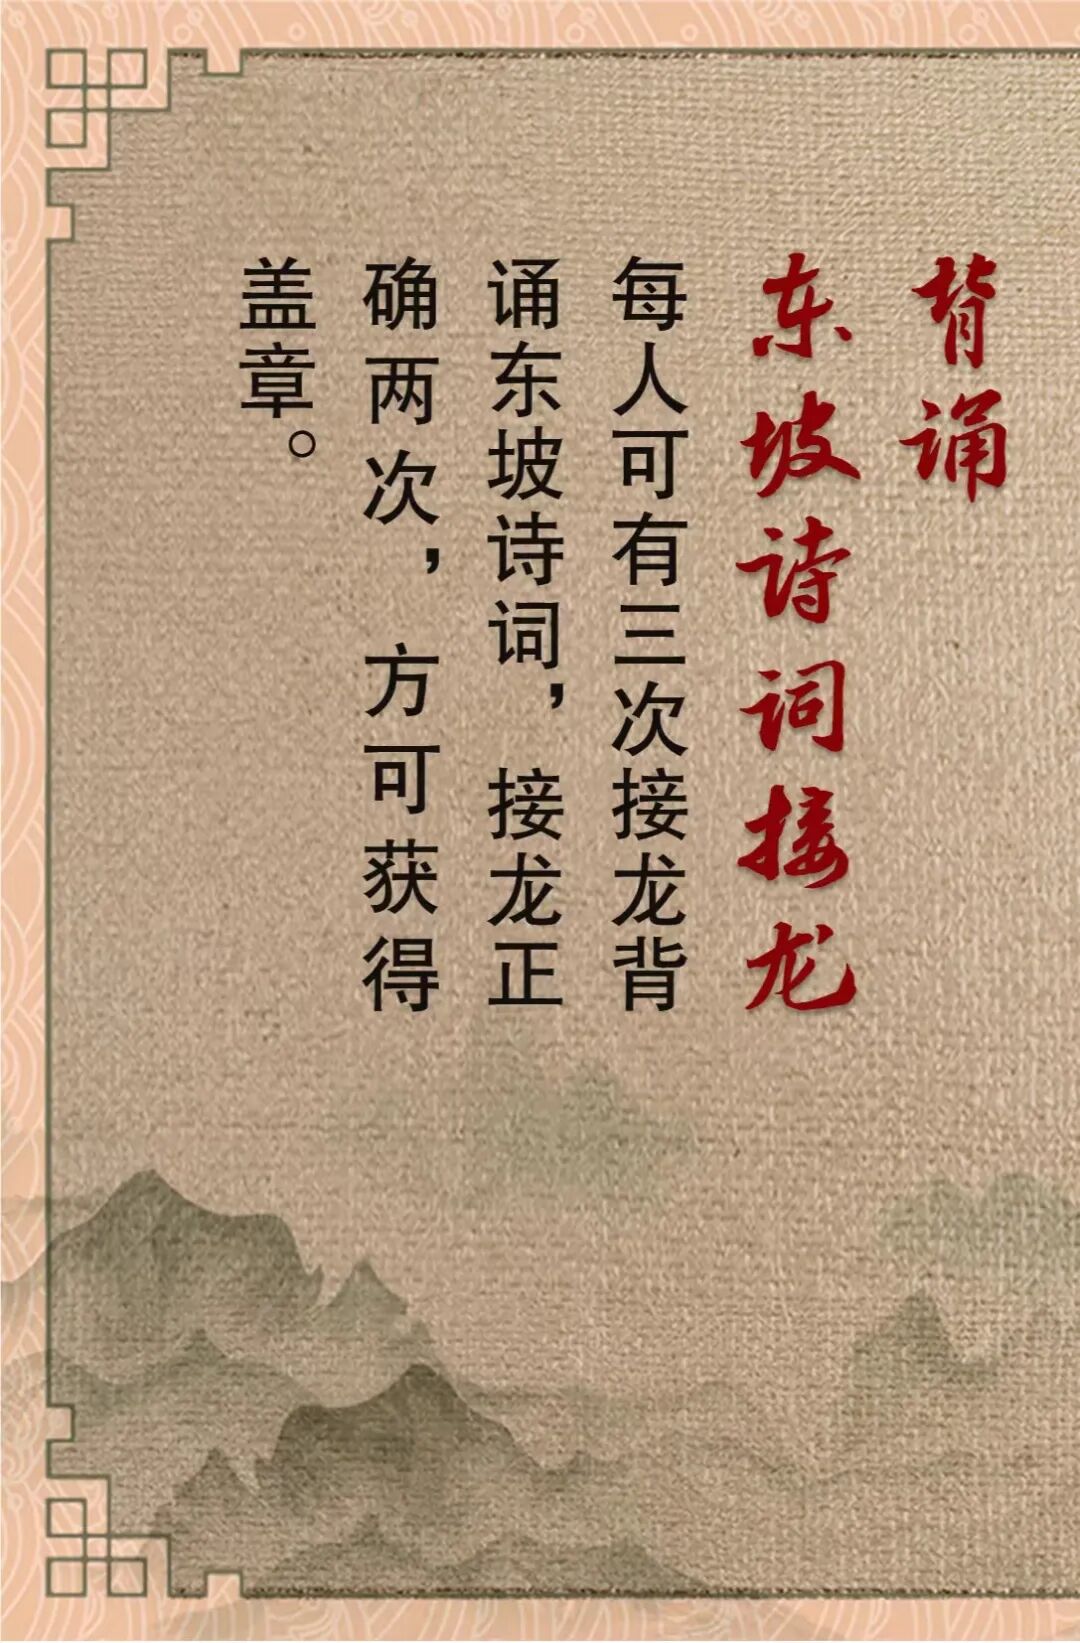 背诵
东坡诗词接龙
每人可有三次接龙背
诵东坡诗词，接龙正
确两次，方可获得
盖章。